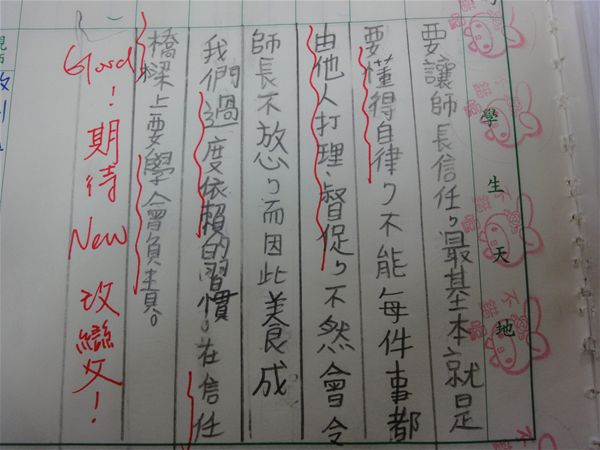 學生天地
要讓師長信任，最基本就是
要懂得自律，不能每件事都
由他人打理、督促，不然會令
師長不放心，而因此養成
我們過度依賴的習慣。在信任
橋樑上要學會負責。
Good！期待New 改變！